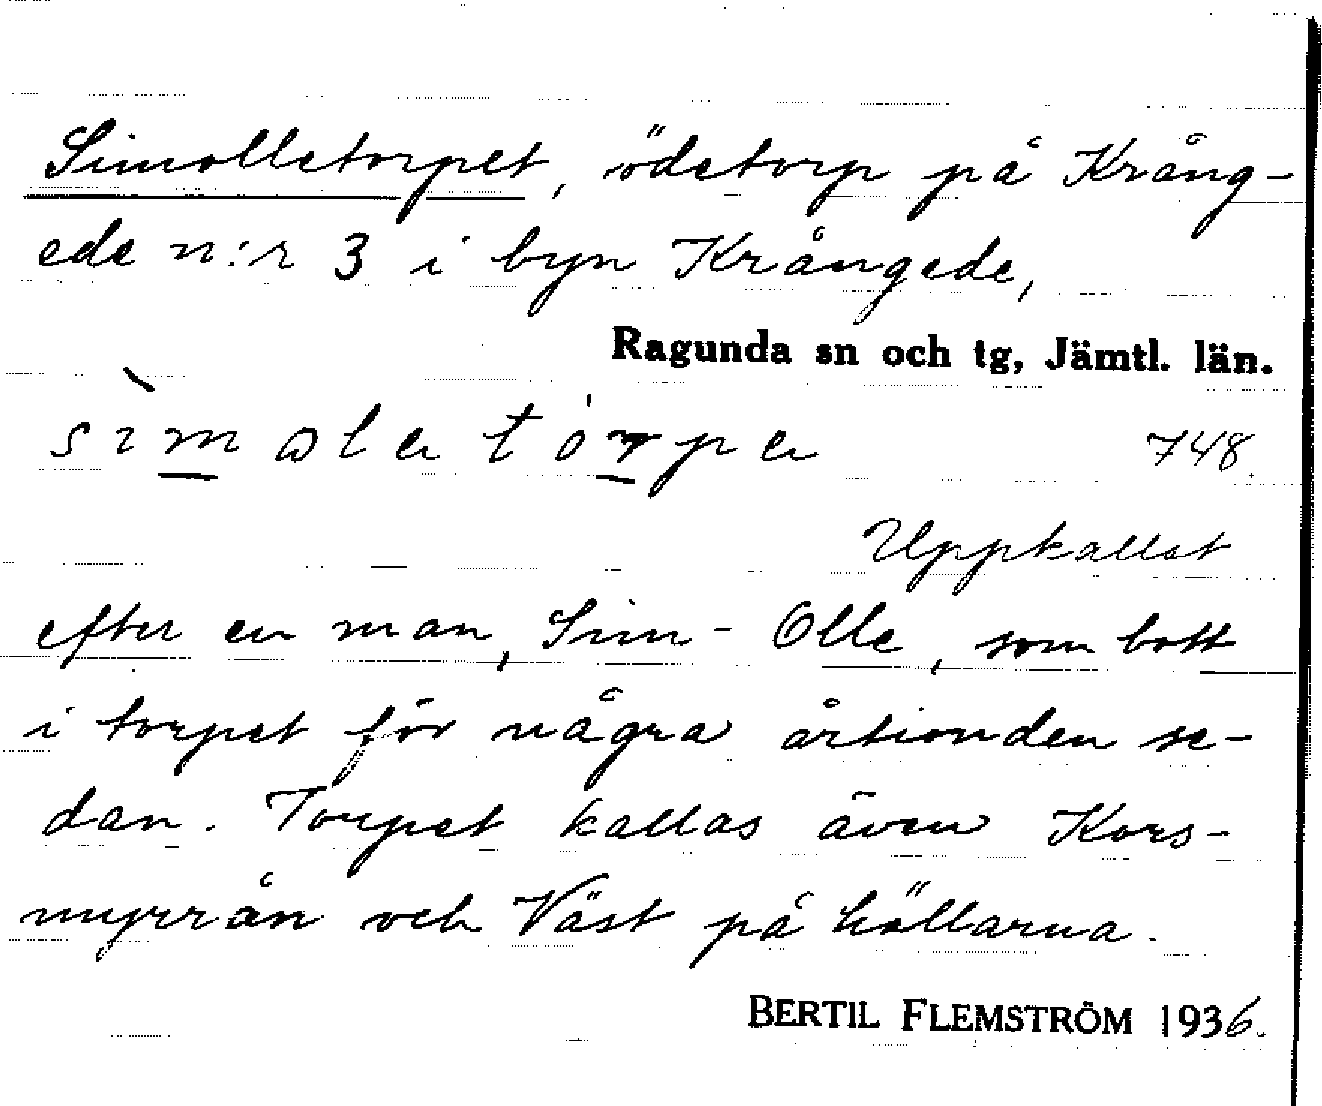 Simolletorpet, ödetorp på Krång-
ede n:r 3 i byn Krångede,
Ragunda sn och tg, Jämtl. län.
748.
Uppkallat
efter en man, Sim-Olle, som bott
i torpet för några årtionden se-
dan. Torpet kallas även Kors-
myrrån och Väst på höllarna.
BERTIL FLEMSTRÖM 1936.